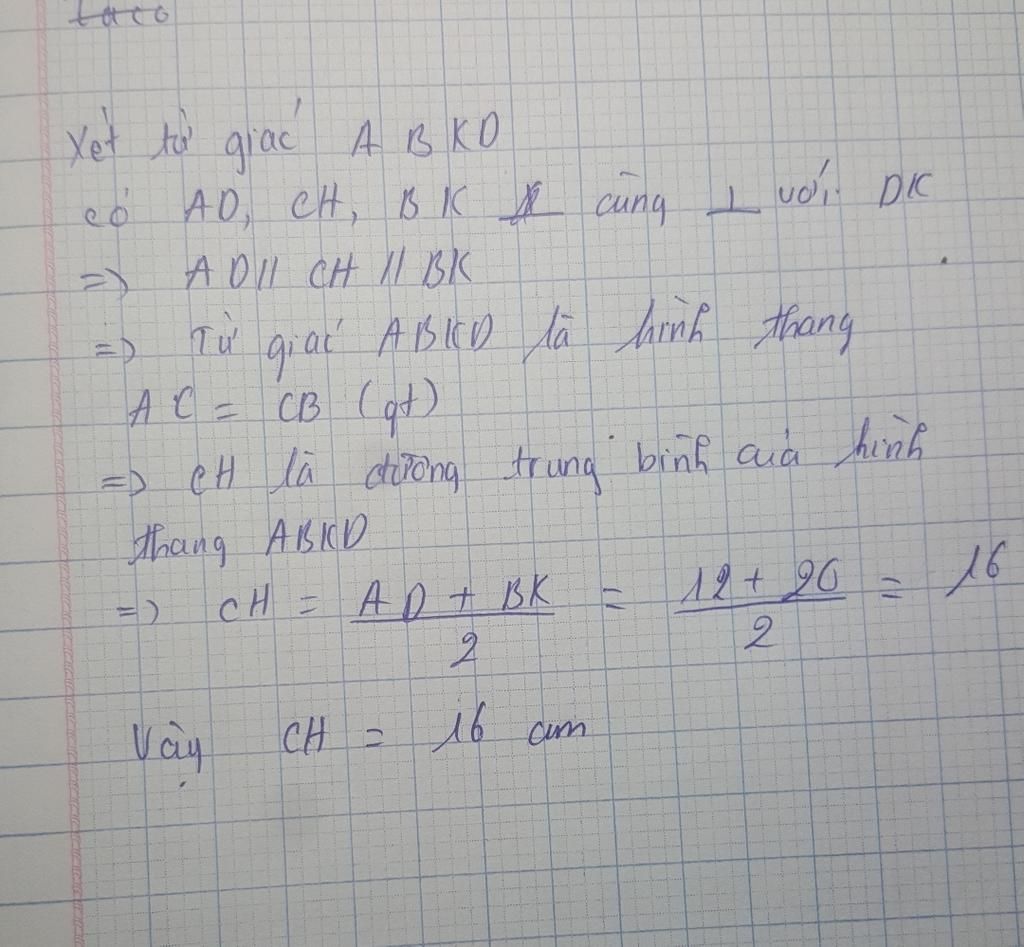 Xét tứ giác ABKD
có AD, CH, BK cùng ⊥ với DK
=> AD // CH // BK
=> Tứ giác ABKD là hình thang
AC = CB (gt)
=> CH là đường trung bình của hình
thang ABKD
=> CH = \frac{AD + BK}{2} = \frac{12 + 20}{2} = 16
Vậy CH = 16 cm